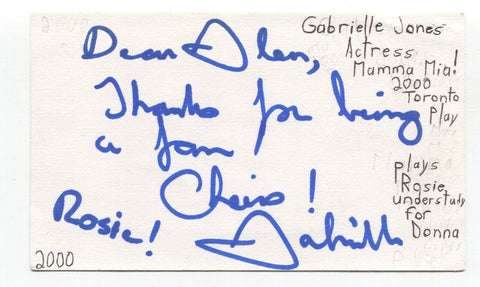 Dear Alen,
Thanks for being
a fan
Cheers!
Rosie!
Gabrielle
Gabrielle Jones
Actress
Mamma Mia!
2000
Toronto
Play
plays
Rosie,
understudy
for
Donna
2000